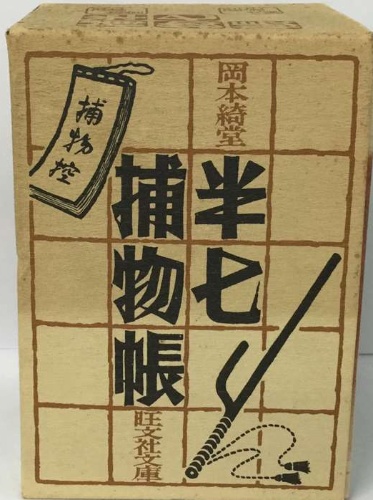 岡本綺堂
半七
捕物帳
捕物控
旺文社文庫